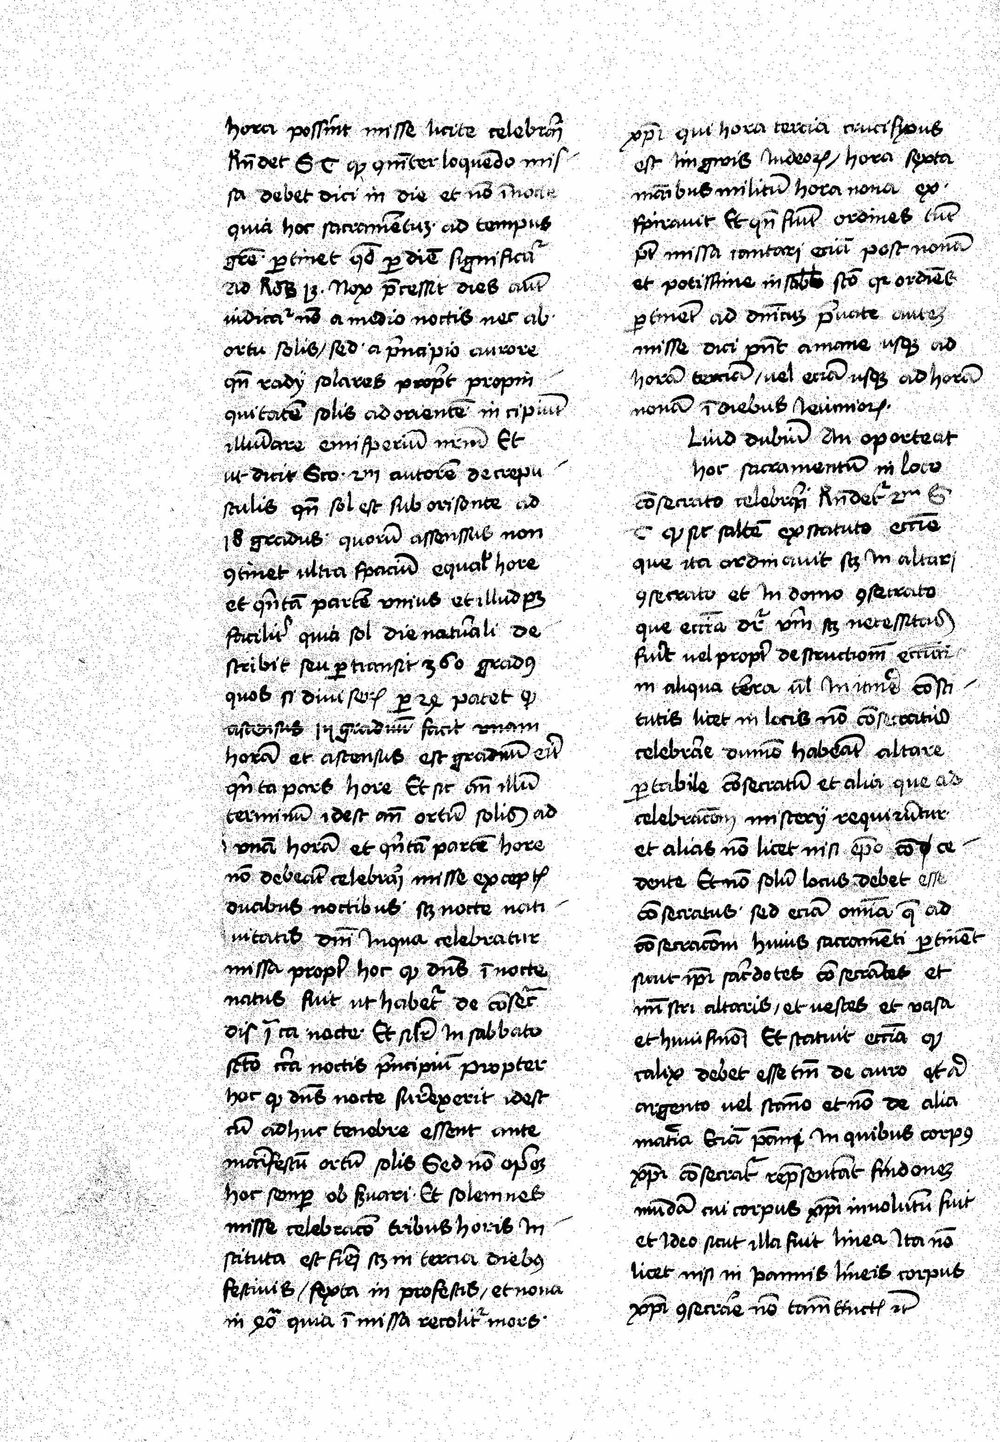 hora possint misse licite celebrari
Rñdet S T ꝙ qm̃ter loquẽdo mis
sa debet dici in die et nõ ĩ nocte
quia hoc sacramẽtuʒ ad tempus
gr̃e ꝑtinet qd̃ ꝑ diẽ significat᷑
ad Ro 13. Nox p̃cessit dies aũt
iudicat᷑ nõ a medio noctis nec ab
ortu solis / sed a p̃ncipio aurore
qñ radij solares propt̃ propin
quitatẽ solis ad orientẽ incipiũt
illuĩare emisperiũ nr̃m Et
ut dicit Sco. 2m autorẽ de crepu
sculis qñ sol est sub orisonte ad
18 gradus quorũ assenssus non
ꝯtinet ultra spaciũ equal̃ hore
et qñtã partẽ vnius et illud pʒ
facilit̃ quia sol die naturali de
scribit seu ꝑtransit 360 gradꝰ
quos si diuiseris ꝑ 24 patet ꝙ
ascensus 15 graduũ facit vnam
horã et ascensus est graduũ eñ
qñta pars hore Et sic añ illũ
terminũ idest añ ortũ solis ad
1 vnã horã et qñtã partẽ hore
nõ debeãt celebrari misse exceptis
duabus noctibus sʒ nocte nati
uitatis dñi In qua celebratur
missa propt̃ hoc ꝙ dñs ĩ nocte
natus fuit ut habet᷑ de cõsec̃
dis̃ ĩ ca nocte Et sil̃r In sabbato
sc̃to cr̃a noctis p̃ncipiũ Propter
hoc ꝙ dñs nocte surrexerit idest
cũ adhuc tenebre essent ante
manifestũ ortũ solis Sed nõ oporʒ
hoc semꝑ obseruari Et solemnes
misse celebracõ tribus horis In
stituta est fieri sʒ in tercia diebꝰ
festiuis / sexta in profestis / et nona
in ꝗõr̃ quia ĩ missa recolit᷑ mors
xp̃i qui hora tercia crucifixus
est linguis Iudeoꝝ / hora sexta
manibus militũ hora nona ex
spirauit Et qñ fiũt ordines tũc
põt missa cantari eciã post nonã
et potissime in sabb̃ sc̃to qr̃ ordiẽs
ꝑtinẽt ad dñicuʒ p̃uate autem
misse dici pñt a mane usqʒ ad
horã terciã / vel eciã usqʒ ad horã
nonã ĩ diebus Ieiunioꝝ
Liud dubiũ An oporteat
hoc sacramentũ in loco
cõsecrato celebrari Rñdet᷑ 2m S
T ꝙ sic saltẽ ex statuto eccl̃ie
que ita ordinauit sʒ In altari
ꝯsecrato et In domo ꝯsecrato
que eccl̃ia dr̃ vñi sʒ necessitas
fuit̃ vel propt̃ destructionẽ eccl̃iaꝝ
in aliqua terra ul̃ In itiner̃ cõsti
tutis licet in locis nõ cõsecratis
celebrare dumõ habeãt altare
ꝑtabile cõsecratũ et alia que ad
celebracõem misterij requirũtur
et alias nõ licet nisi ep̃o cõce
dente Et nõ solũ locus debet esse
cõsecratus sed eciã omĩa q̃ ad
cõsecracõem huius sacramẽti ꝑtinẽt
sicut ip̃i sac̃dotes cõsecrãtes et
mĩstri altaris / et uestes et vasa
et huiusmõi Et statuit eccl̃ia ꝙ
calix debet esse tm̃ de auro et ar̃
argento uel stanno et nõ de alia
mat̃ia Eciã panni In quibus corpꝰ
xp̃i cõsecrat᷑ rep̃sentãt sindoneʒ
mũdã cui corpus xp̃i inuolutũ fuit
et Ideo sicut illa fuit linea Ita nõ
licet nisi in pannis lineis corpus
xp̃i ꝯsecrare nõ tamẽ tinctis it̃